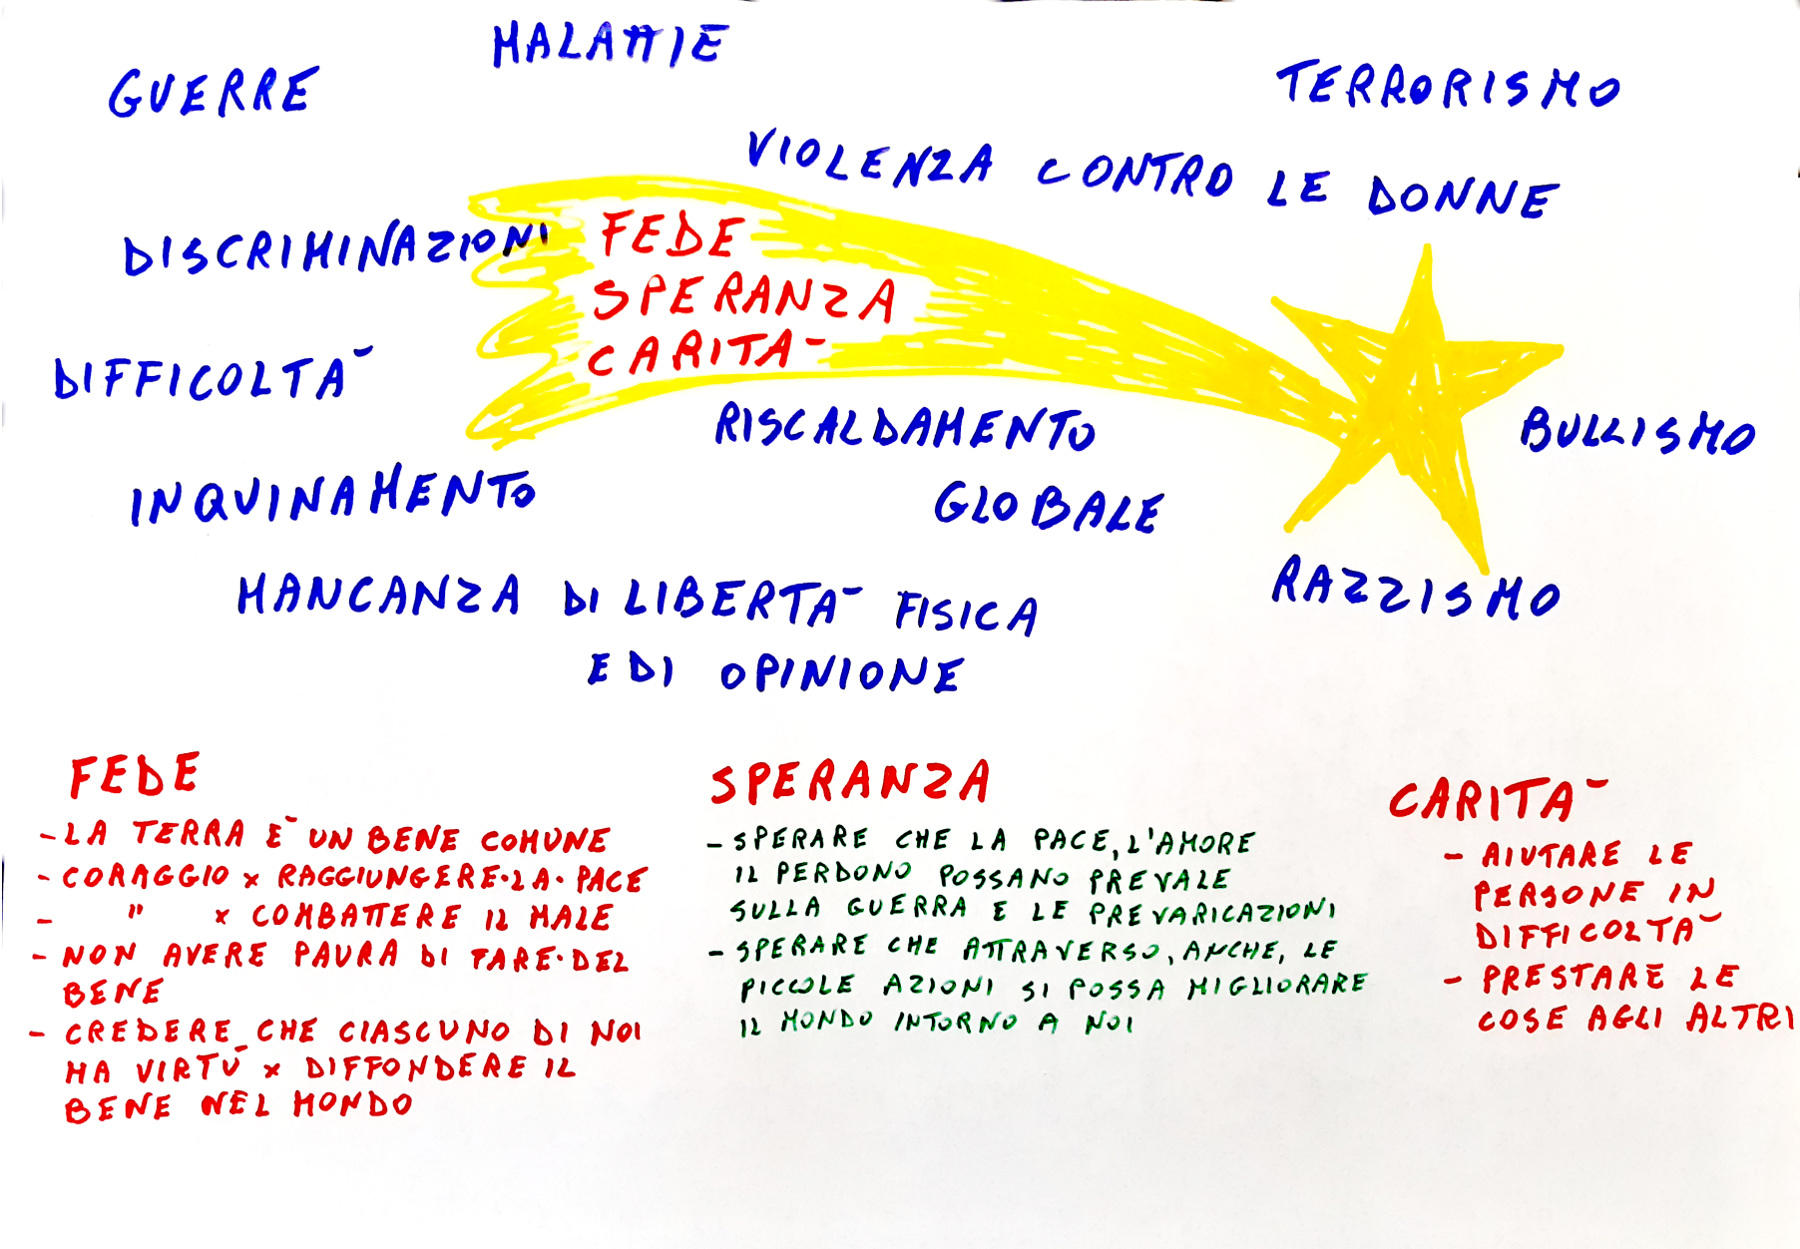 MALATTIE
GUERRE
TERRORISMO
VIOLENZA CONTRO LE DONNE
DISCRIMINAZIONI
FEDE
SPERANZA
CARITA-
DIFFICOLTA-
RISCALDAMENTO
GLOBALE
BULLISMO
INQUINAMENTO
RAZZISMO
MANCANZA DI LIBERTA- FISICA
E DI OPINIONE
FEDE
-LA TERRA E- UN BENE COMUNE
-CORAGGIO x RAGGIUNGERE·LA·PACE
- " x COMBATTERE IL MALE
-NON AVERE PAURA DI FARE·DEL
BENE
-CREDERE CHE CIASCUNO DI NOI
HA VIRTÙ x DIFFONDERE IL
BENE NEL MONDO
SPERANZA
-SPERARE CHE LA PACE, L'AMORE
IL PERDONO POSSANO PREVALE
SULLA GUERRA E LE PREVARICAZIONI
-SPERARE CHE ATTRAVERSO, ANCHE, LE
PICCOLE AZIONI SI POSSA MIGLIORARE
IL MONDO INTORNO A NOI
CARITA-
- AIUTARE LE
PERSONE IN
DIFFICOLTA-
- PRESTARE LE
COSE AGLI ALTRI